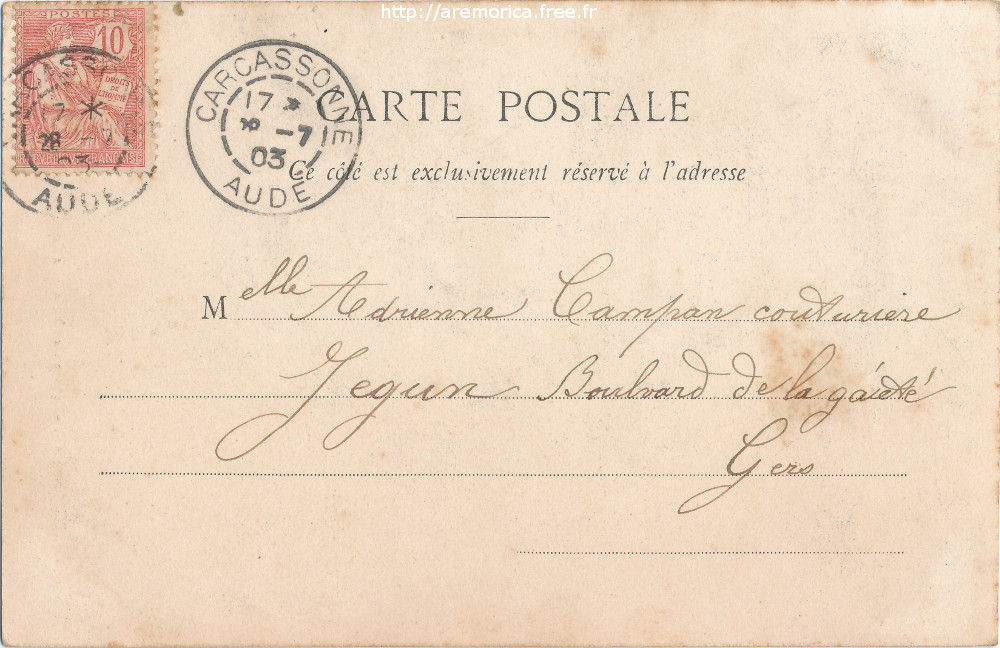 http://aremorica.free.fr
POSTES
10
DROITS DE L'HOMME
REPUBLIQUE FRANÇAISE
17 *
28 -7
03
AUDE
CARCASSONNE
17 *
-7
03
AUDE
CARTE POSTALE
Ce côté est exclusivement réservé à l'adresse
Melle Adrienne Campan couturiere
Jegun Boulvard de la gáieté
Gers